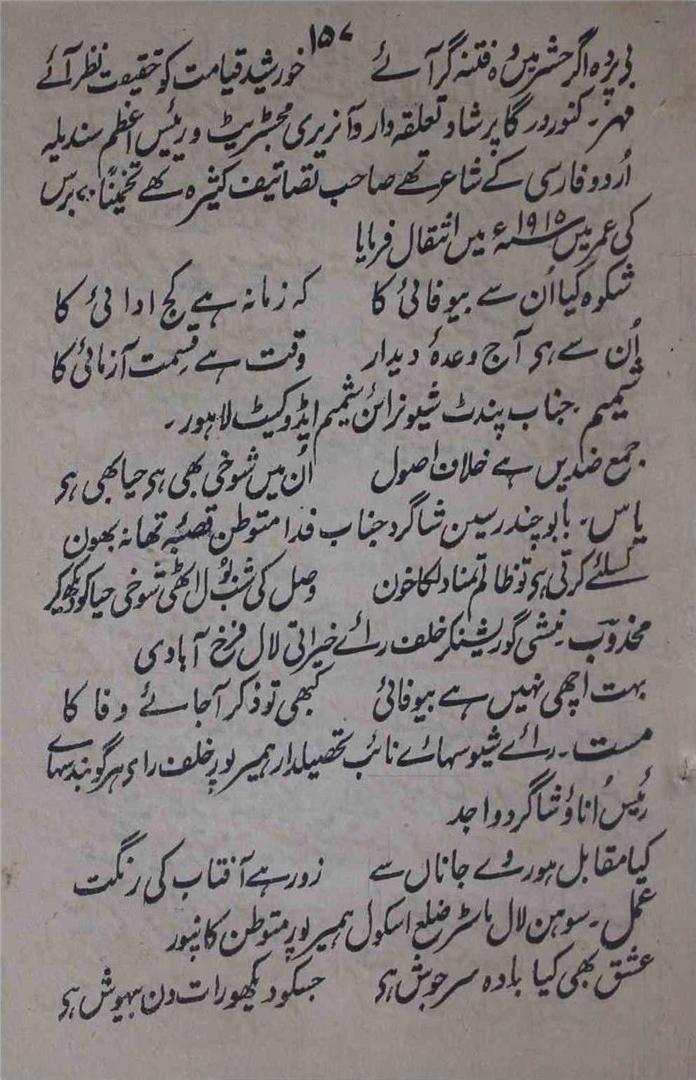 ۱۵۷
بی پردہ اگر حشر میں وہ فتنہ گر آئے خورشید قیامت کو حقیقت نظر آئے
مہر۔ کنور درگا پرشاد تعلقہ دار و آنریری مجسٹریٹ و رئیس اعظم سندیلہ
اُردو فارسی کے شاعر تھے صاحب تصانیف کثیرہ تھے تخمیناً ۷۰ برس
کی عمر میں ۱۹۱۵ء میں انتقال فرمایا
شکوہ کیا اُن سے بیوفائی کا کہ زمانہ ہے کج ادائی کا
اُن سے ہو آج وعدۂ دیدار وقت ہے قسمت آزمائی کا
شمیم۔ جناب پنڈت شیو نرائن شمیم ایڈوکیٹ لاہور۔
جمع ضدیں ہے خلاف اصول اُن میں شوخی بھی ہو حیا بھی ہو
یاس۔ بابو چندر سین شاگرد جناب فدا متوطن قصبہ تھانہ بھون
کسلئے کرتی ہو تو ظالم تمنا دلکا خون وصل کی شب بول اٹھی شوخی حیا کو دیکھکر
مخذوب۔ منشی گوریشنکر خلف رائے خیراتی لال فرخ آبادی
بہت اچھی نہیں ہے بیوفائی کبھی تو ذکر آجائے وفا کا
مست۔ رائے شیو سہائے نائب تحصیلدار ہمیرپور خلف رای ہرگوبند سہائے
رئیس اُناؤ شاگرد واجد
کیا مقابل ہو روے جاناں سے زور ہے آفتاب کی رنگت
عمل۔ سوہن لال ماسٹر ضلع اسکول ہمیرپور متوطن کانپور
عشق بھی کیا بادہ سرجوش ہو جسکو دیکھو رات دن بیہوش ہو